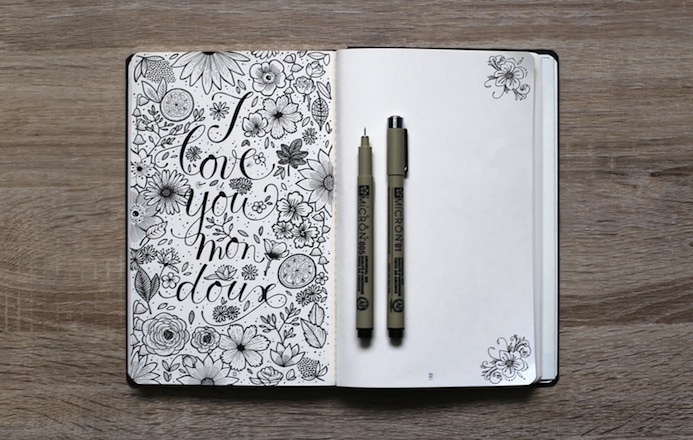 I
love
you
mon
doux
MICRON 005
MICRON 01